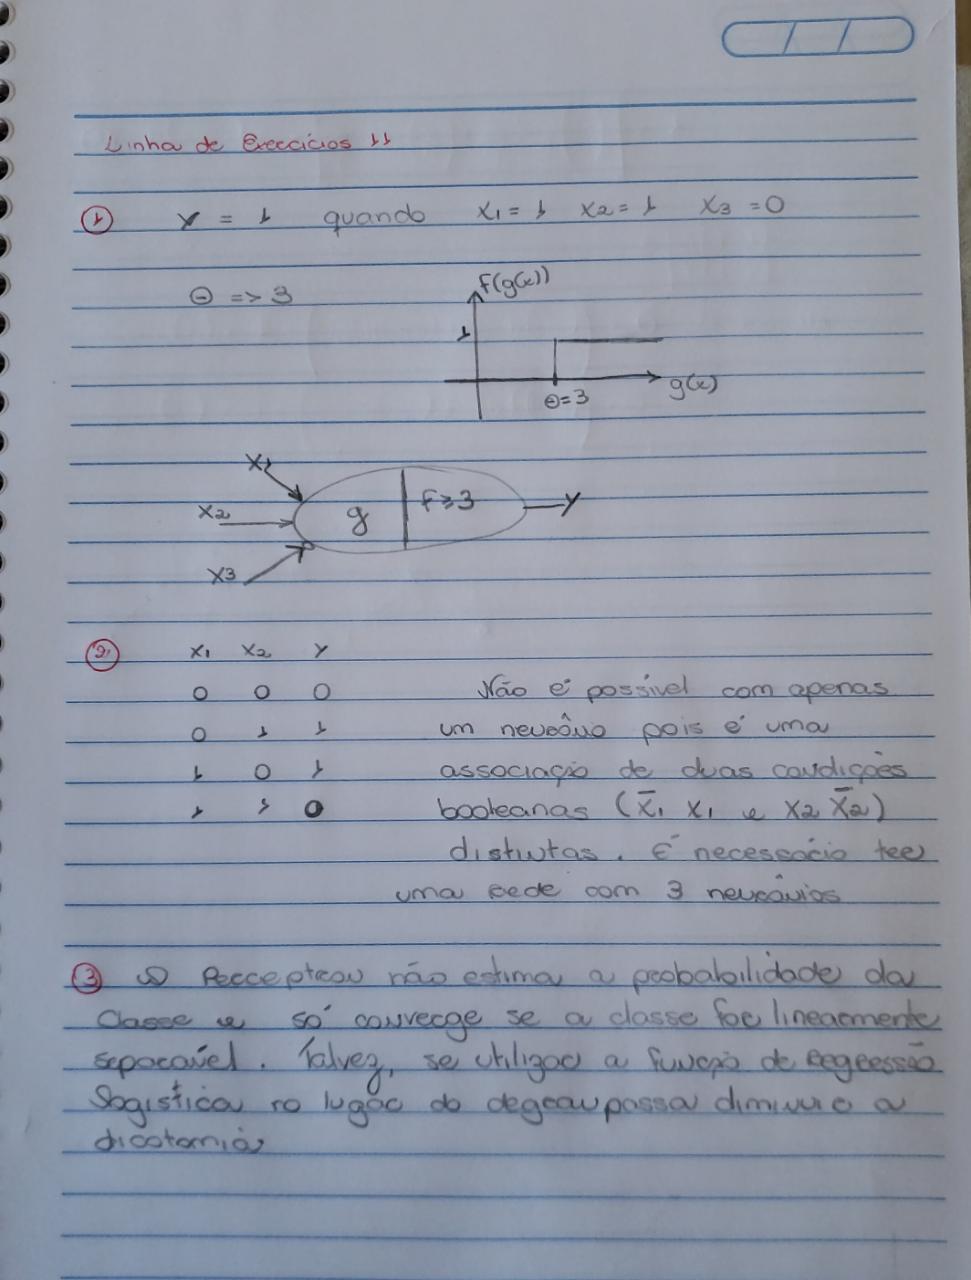 Linha de Exercícios 11
1 Y = 1 quando X1 = 1 X2 = 1 X3 = 0
Θ => 3
f(g(x))
1
g(x)
Θ=3
X1
X2
X3
g
f≥3
Y
2 X1 X2 Y
0 0 0 Não é possível com apenas
0 1 1 um neurônio pois é uma
1 0 1 associação de duas condições
1 1 0 booleanas (X̄1 X1 e X2 X̄2)
distintas. É necessário ter
uma rede com 3 neurônios
3 O Perceptron não estima a probabilidade da
Classe e só converge se a classe for linearmente
separável. Talvez, se utilizar a função de Regressão
Logística no lugar do degrau possa diminuir a
dicotomia